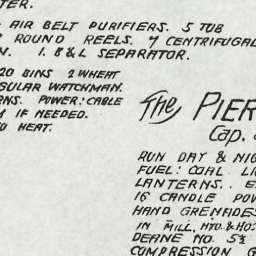 TER.
AIR BELT PURIFIERS. 5 TUB
ROUND REELS. 7 CENTRIFUGAL
N. 1 B&L SEPARATOR.
20 BINS 2 WHEAT
GULAR WATCHMAN.
RNS. POWER: CABLE
M IF NEEDED.
O HEAT.
The PIER
Cap.
RUN DAY & NIG
FUEL: COAL. LI
LANTERNS.. E
16 CANDLE POW
HAND GRENADES
IN MILL,
DEANE NO. 5½
COMPRESSION G